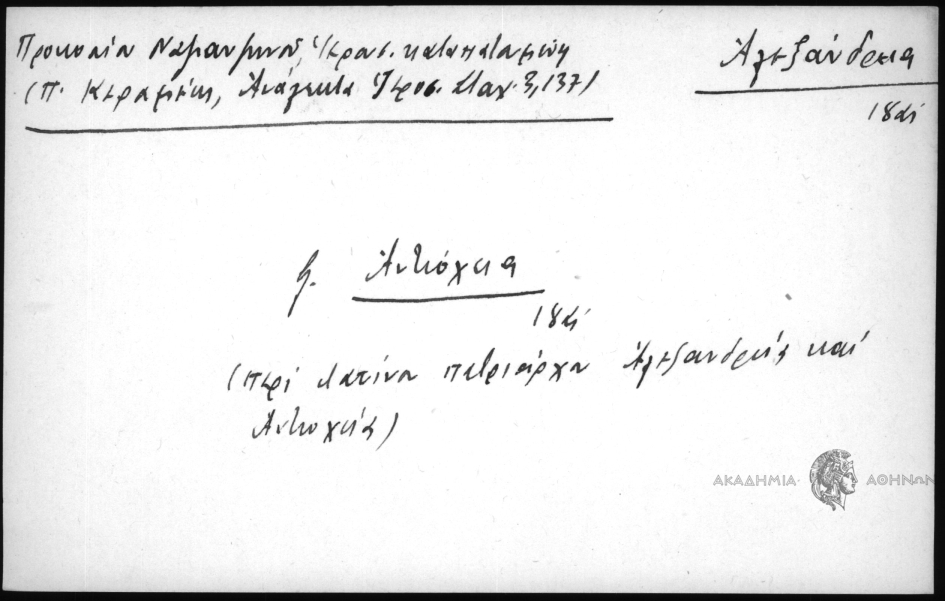 Προκοπίου Ναζιανζηνοῦ, Ἱερουσ. καταπατουμένη
(Π. Κεραμέως, Ἀνάλεκτα Ἱεροσ. Σταχ. 3, 137)
Ἀλεξάνδρεια
18αι
β. Ἀντιόχεια
18αι
(περὶ Λατίνου πατριάρχου Ἀλεξανδρείας καὶ
Ἀντιοχείας)
ΑΚΑΔΗΜΙΑ ΑΘΗΝΩΝ